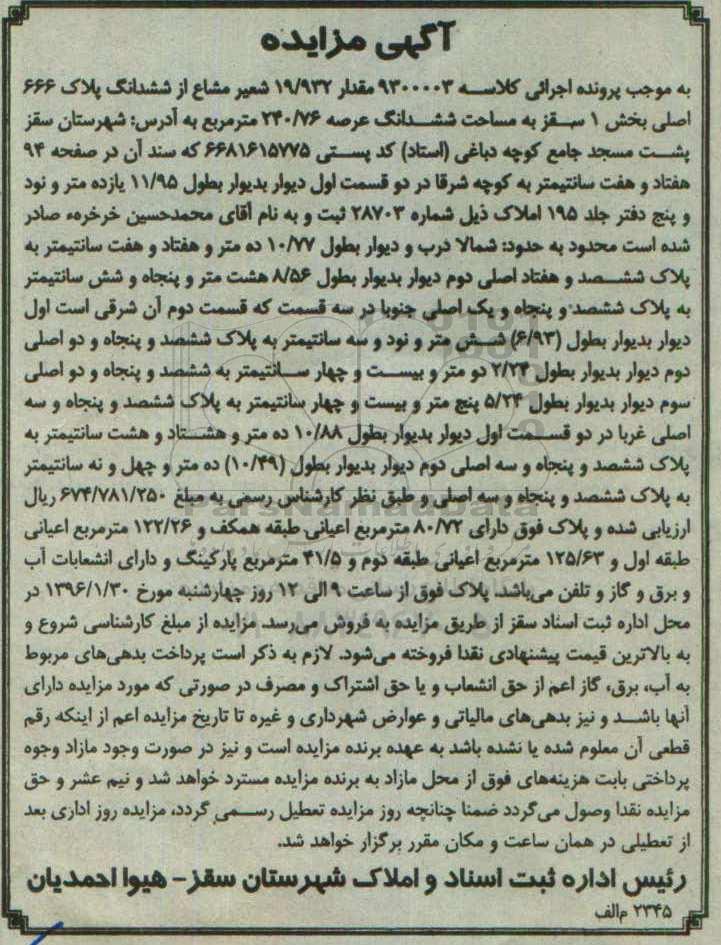 آگهی مزایده
به موجب پرونده اجرائی کلاسه ۹۳۰۰۰۰۳ مقدار ۱۹/۹۳۲ شعیر مشاع از ششدانگ پلاک ۶۶۶
اصلی بخش ۱ سقز به مساحت ششدانگ عرصه ۲۴۰/۷۶ مترمربع به آدرس: شهرستان سقز
پشت مسجد جامع کوچه دباغی (استاد) کد پستی ۶۶۸۱۶۱۵۷۷۵ که سند آن در صفحه ۹۴
هفتاد و هفت سانتیمتر به کوچه شرقا در دو قسمت اول دیوار بدیوار بطول ۱۱/۹۵ یازده متر و نود
و پنج دفتر جلد ۱۹۵ املاک ذیل شماره ۲۸۷۰۳ ثبت و به نام آقای محمدحسین خرخره‌ء صادر
شده است محدود به حدود: شمالا درب و دیوار بطول ۱۰/۷۷ ده متر و هفتاد و هفت سانتیمتر به
پلاک ششصد و هفتاد اصلی دوم دیوار بدیوار بطول ۸/۵۶ هشت متر و پنجاه و شش سانتیمتر
به پلاک ششصد و پنجاه و یک اصلی جنوبا در سه قسمت که قسمت دوم آن شرقی است اول
دیوار بدیوار بطول (۶/۹۳) شش متر و نود و سه سانتیمتر به پلاک ششصد و پنجاه و دو اصلی
دوم دیوار بدیوار بطول ۲/۲۴ دو متر و بیست و چهار سانتیمتر به ششصد و پنجاه و دو اصلی
سوم دیوار بدیوار بطول ۵/۲۴ پنج متر و بیست و چهار سانتیمتر به پلاک ششصد و پنجاه و سه
اصلی غربا در دو قسمت اول دیوار بدیوار بطول ۱۰/۸۸ ده متر و هشتاد و هشت سانتیمتر به
پلاک ششصد و پنجاه و سه اصلی دوم دیوار بدیوار بطول (۱۰/۴۹) ده متر و چهل و نه سانتیمتر
به پلاک ششصد و پنجاه و سه اصلی و طبق نظر کارشناس رسمی به مبلغ ۶۷۴/۷۸۱/۲۵۰ ریال
ارزیابی شده و پلاک فوق دارای ۸۰/۷۲ مترمربع اعیانی طبقه همکف و ۱۲۲/۲۶ مترمربع اعیانی
طبقه اول و ۱۲۵/۶۳ مترمربع اعیانی طبقه دوم و ۴۱/۵ مترمربع پارکینگ و دارای انشعابات آب
و برق و گاز و تلفن می‌باشد. پلاک فوق از ساعت ۹ الی ۱۲ روز چهارشنبه مورخ ۱۳۹۶/۱/۳۰ در
محل اداره ثبت اسناد سقز از طریق مزایده به فروش می‌رسد. مزایده از مبلغ کارشناسی شروع و
به بالاترین قیمت پیشنهادی نقدا فروخته می‌شود. لازم به ذکر است پرداخت بدهی‌های مربوط
به آب، برق، گاز اعم از حق انشعاب و یا حق اشتراک و مصرف در صورتی که مورد مزایده دارای
آنها باشد و نیز بدهی‌های مالیاتی و عوارض شهرداری و غیره تا تاریخ مزایده اعم از اینکه رقم
قطعی آن معلوم شده یا نشده باشد به عهده برنده مزایده است و نیز در صورت وجود مازاد وجوه
پرداختی بابت هزینه‌های فوق از محل مازاد به برنده مزایده مسترد خواهد شد و نیم عشر و حق
مزایده نقدا وصول می‌گردد ضمنا چنانچه روز مزایده تعطیل رسمی گردد، مزایده روز اداری بعد
از تعطیلی در همان ساعت و مکان مقرر برگزار خواهد شد.
رئیس اداره ثبت اسناد و املاک شهرستان سقز- هیوا احمدیان
۲۳۴۵ م‌الف
ParsNamadData